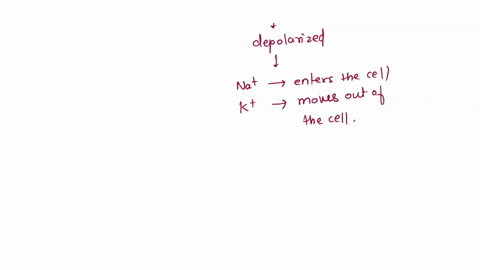 depolarized
Na+ → enters the cell)
K+ → moves out of
the cell.